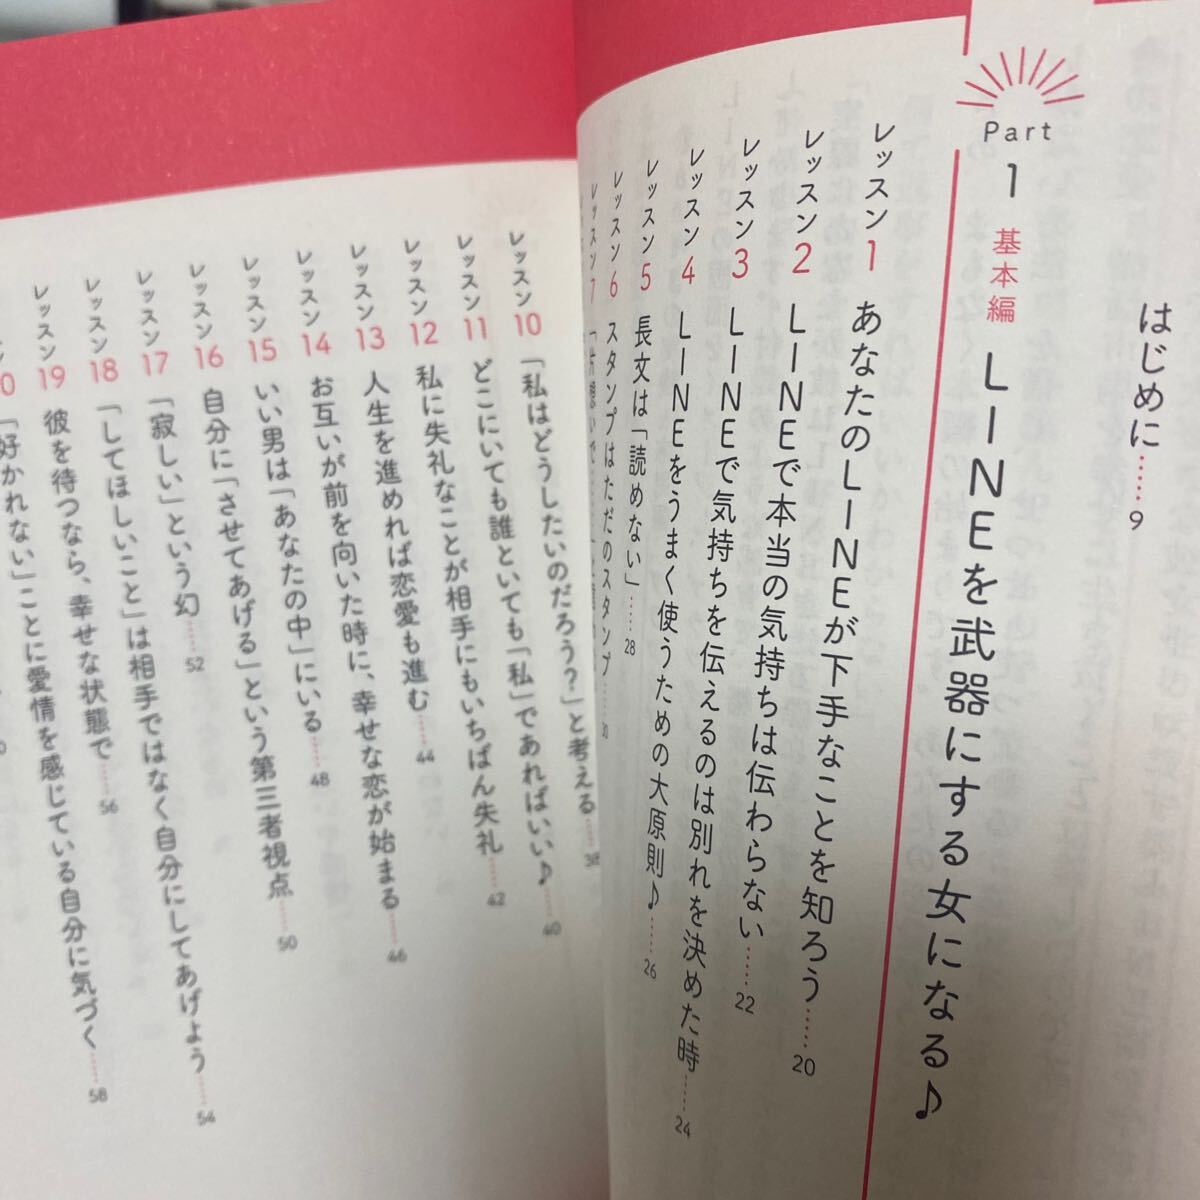 はじめに……9
Part 1 基本編 LINEを武器にする女になる♪
レッスン1 あなたのLINEが下手なことを知ろう……20
レッスン2 LINEで本当の気持ちは伝わらない……22
レッスン3 LINEで気持ちを伝えるのは別れを決めた時……24
レッスン4 LINEをうまく使うための大原則♪……26
レッスン5 長文は「読めない」……28
レッスン6 スタンプはただのスタンプ……30
レッスン7 「片想いで
レッスン10 「私はどうしたいのだろう?」と考える……38
レッスン11 どこにいても誰といても「私」であればいい♪……40
レッスン12 私に失礼なことが相手にもいちばん失礼……42
レッスン13 人生を進めれば恋愛も進む……44
レッスン14 お互いが前を向いた時に、幸せな恋が始まる……46
レッスン15 いい男は「あなたの中」にいる……48
レッスン16 自分に「させてあげる」という第三者視点……50
レッスン17 「寂しい」という幻……52
レッスン18 「してほしいこと」は相手ではなく自分にしてあげよう……54
レッスン19 彼を待つなら、幸せな状態で……56
「好かれない」ことに愛情を感じている自分に気づく……58